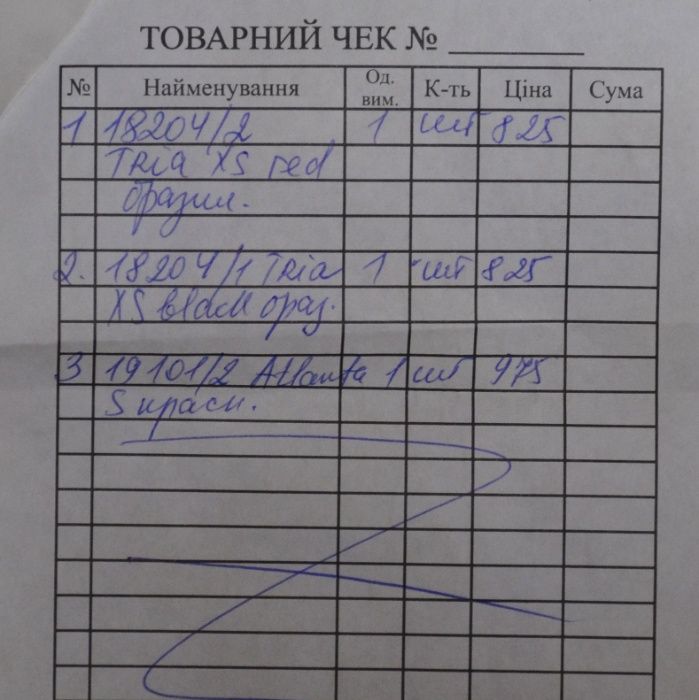 ТОВАРНИЙ ЧЕК №
№ Найменування Од. вим. К-ть Ціна Сума
1 18204/2 1 шт 825
Tria XS red
бразил.
2. 18204/1 Tria 1 шт 825
XS black браз.
3 19101/2 Atlanta 1 шт 975
S красн.